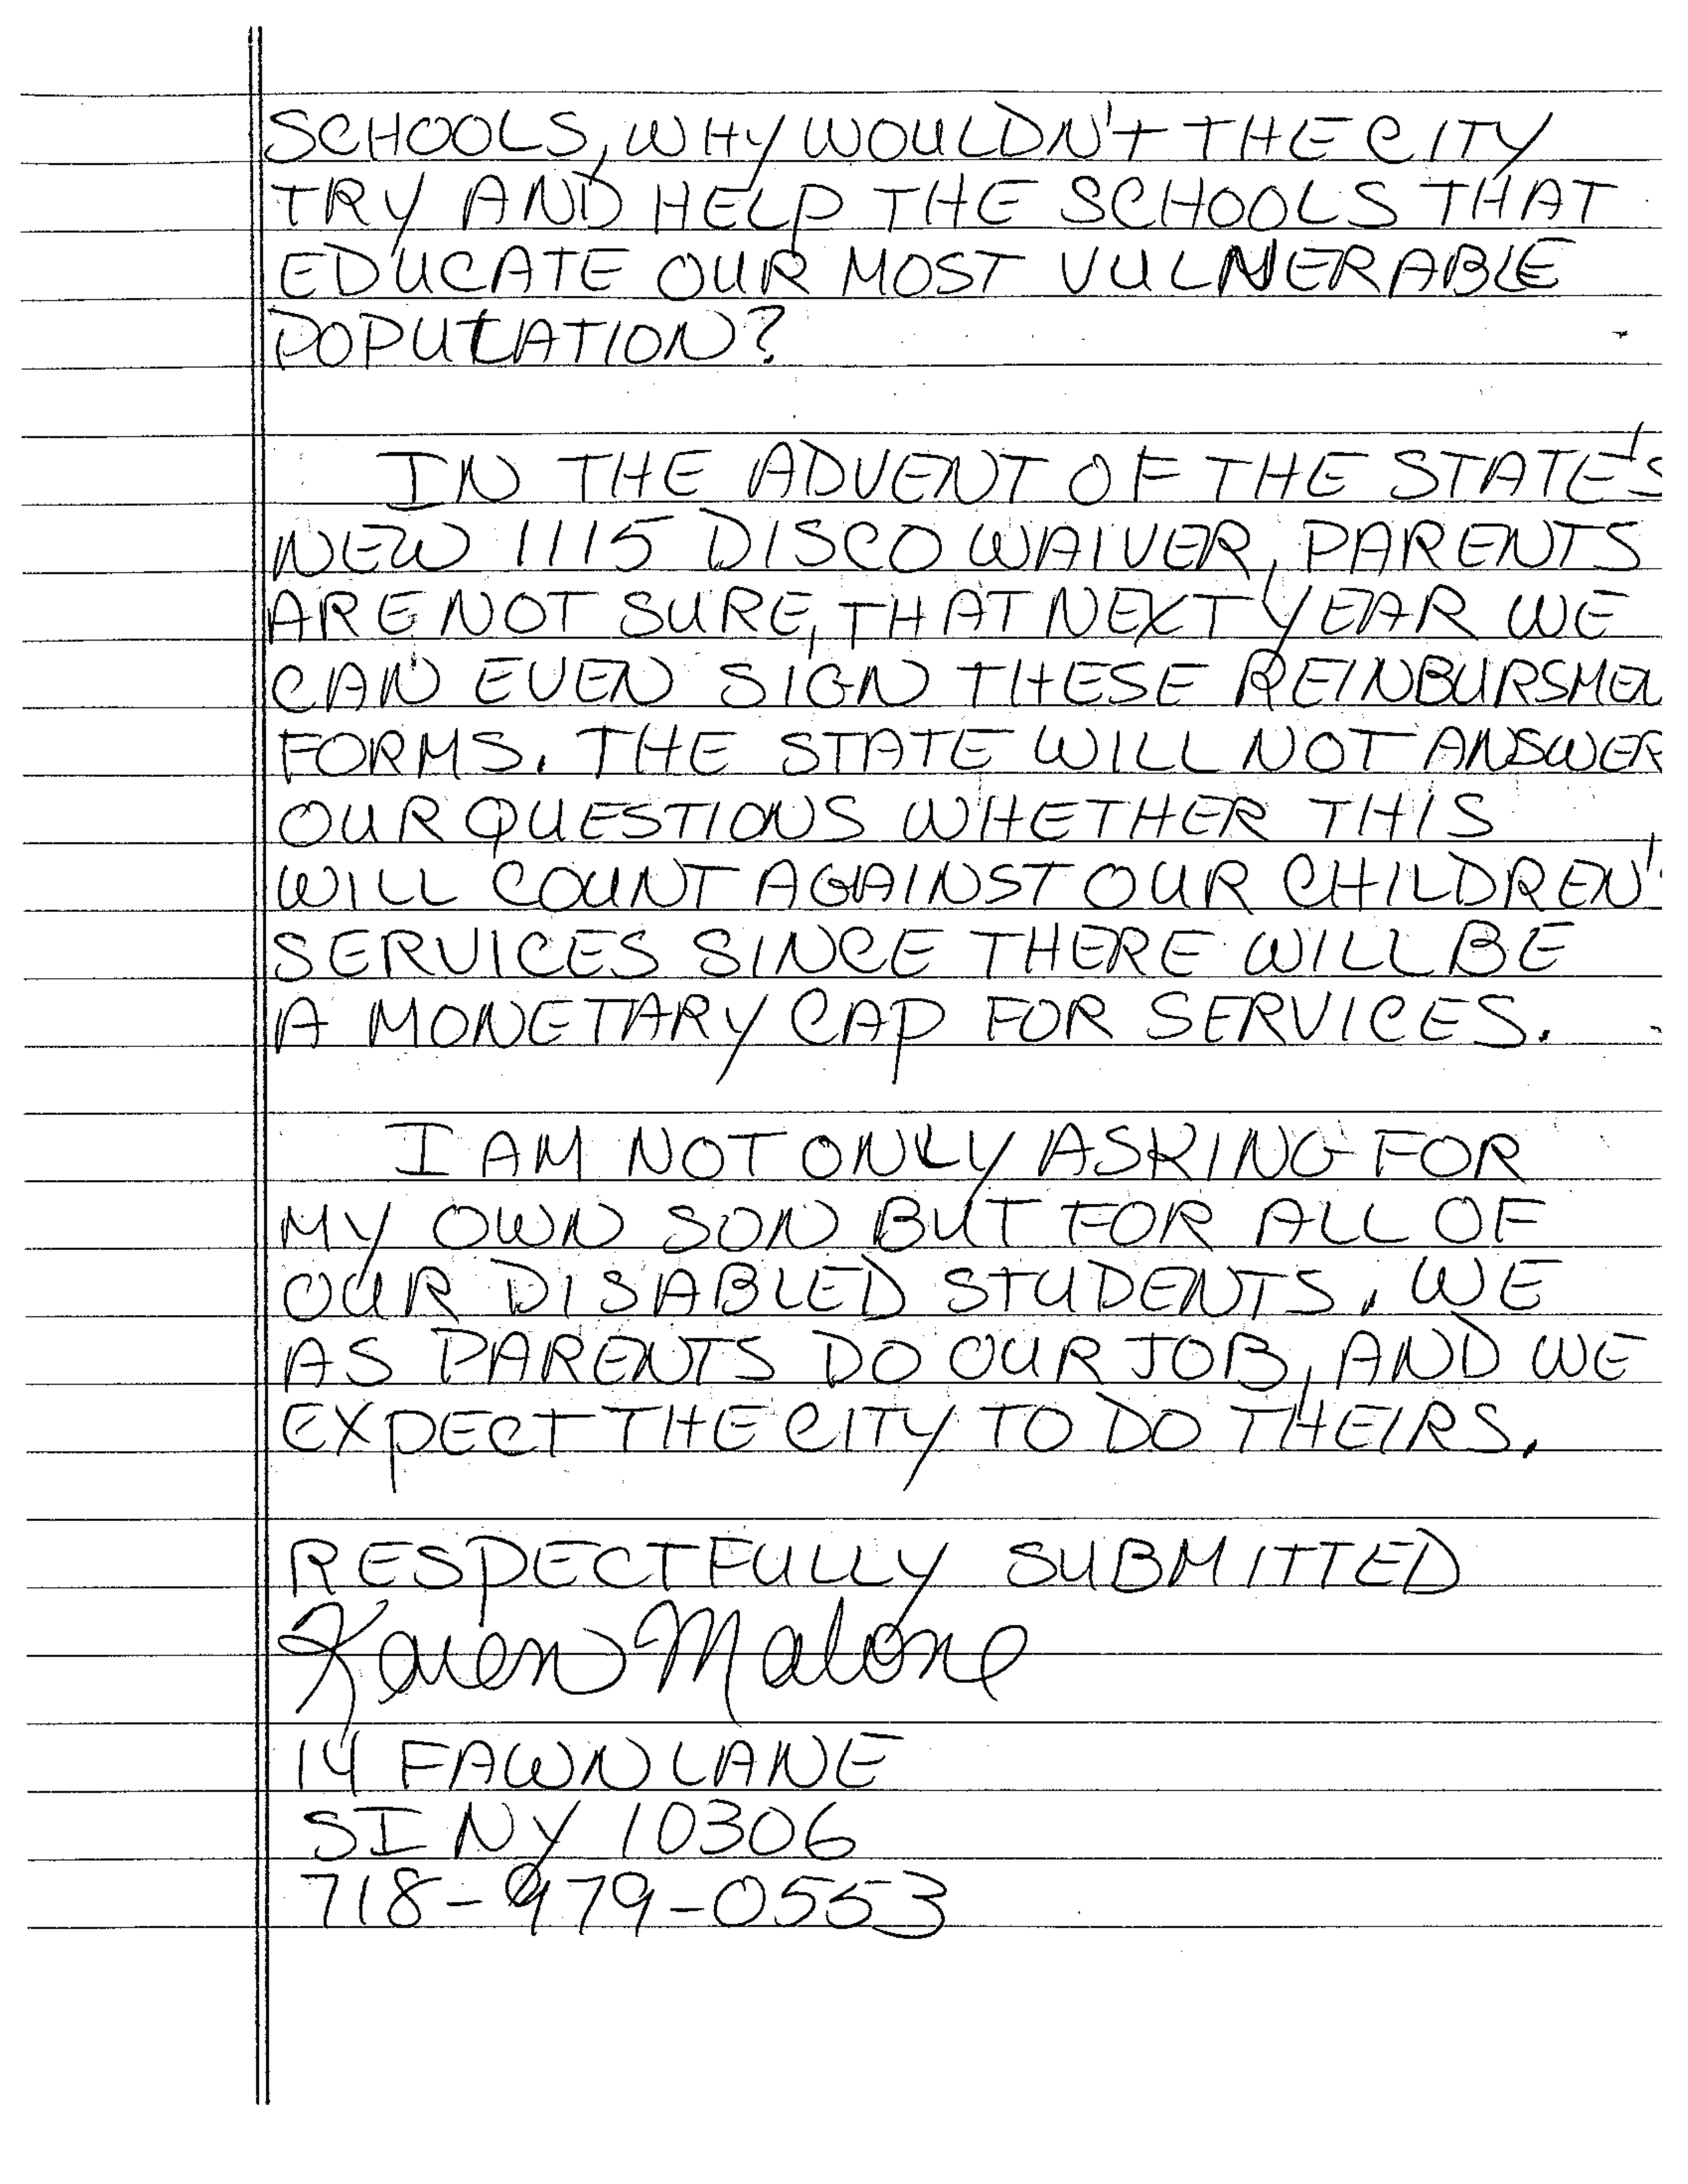 SCHOOLS, WHY WOULDN'T THE CITY
TRY AND HELP THE SCHOOLS THAT
EDUCATE OUR MOST VULNERABLE
POPULATION?
IN THE ADVENT OF THE STATE'S
NEW 1115 DISCO WAIVER, PARENTS
ARE NOT SURE, THAT NEXT YEAR WE
CAN EVEN SIGN THESE REINBURSMEN
FORMS. THE STATE WILL NOT ANSWER
OUR QUESTIONS WHETHER THIS
WILL COUNT AGAINST OUR CHILDREN'
SERVICES SINCE THERE WILL BE
A MONETARY CAP FOR SERVICES.
I AM NOT ONLY ASKING FOR
MY OWN SON BUT FOR ALL OF
OUR DISABLED STUDENTS. WE
AS PARENTS DO OUR JOB, AND WE
EXPECT THE CITY TO DO THEIRS.
RESPECTFULLY SUBMITTED
Karen Malone
14 FAWN LANE
SI NY 10306
718-979-0553